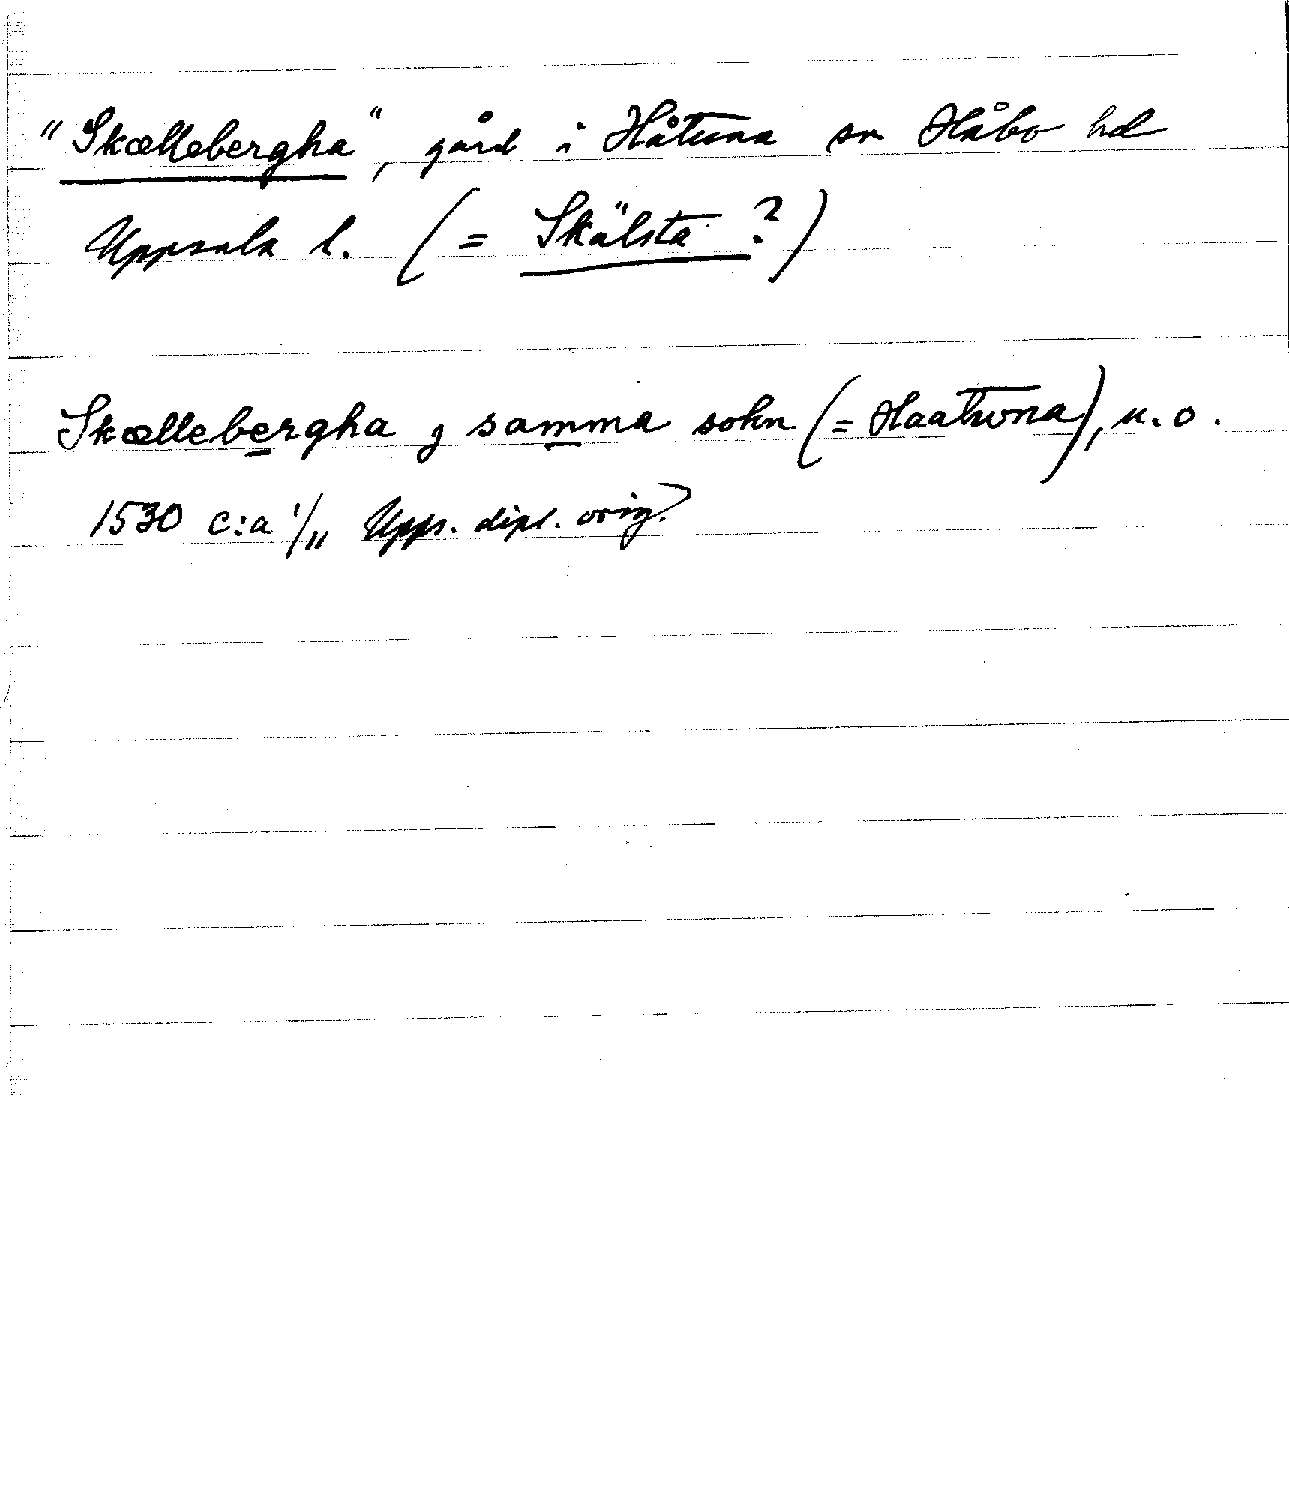 "Skællebergha", gård i Håtuna sn Håbo hd
Uppsala l. (= Skälsta ?)
Skællebergha j samma sokn (= Haatwna), u. o.
1530 c:a 1/11 Upps. dipl. orig.